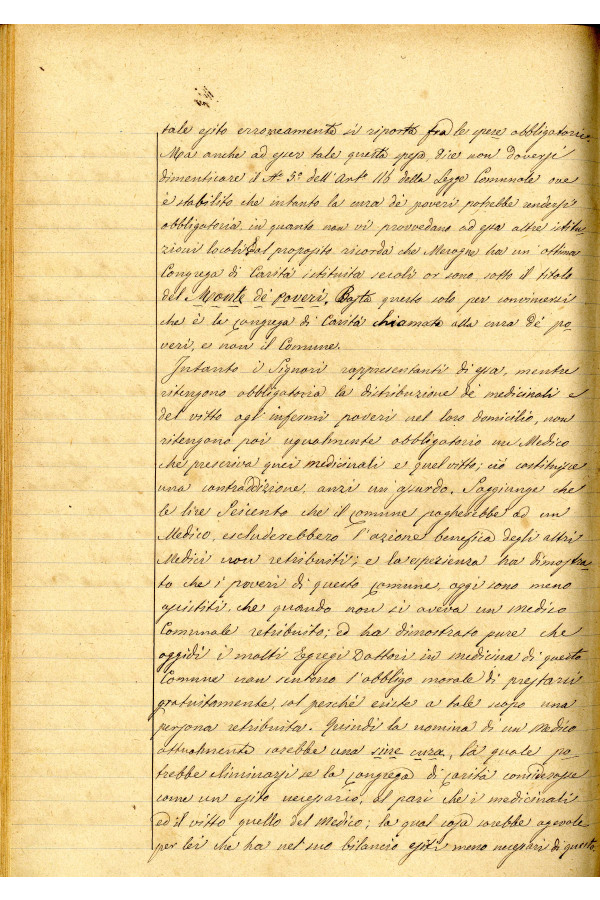 tale esito erroneamente si riporta fra le spese obbligatorie.
Ma anche ad esser tale questa spesa, dice non doversi
dimenticare il N.° 5.° dell'Art.° 116 della Legge Comunale ove
è stabilito che intanto la cura de' poveri potrebbe rendersi
obbligatoria, in quanto non vi provvedano ad essa altre istitu
zioni locali. Al proposito ricorda che Merogne ha un'ottima
Congrega di Carità istituita secoli or sono sotto il titolo
del Monte de' poveri. Basta questo solo per convincersi
che è la Congrega di Carità chiamata alla cura de' po
veri, e non il Comune.
Intanto i Signori rappresentanti di essa, mentre
ritengono obbligatoria la distribuzione de' medicinali e
del vitto agl'infermi poveri nel loro domicilio, non
ritengono poi ugualmente obbligatorio un Medico
che prescriva quei medicinali e quel vitto; ciò costituisce
una contraddizione, anzi un assurdo. Soggiunge che
le lire Seicento che il Comune pagherebbe ad un
Medico, escluderebbero l'azione benefica degli altri
Medici non retribuiti; e la esperienza ha dimostra
to che i poveri di questo Comune, oggi sono meno
assistiti, che quando non si aveva un medico
Comunale retribuito; ed ha dimostrato pure che
oggidì i molti Egregi Dottori in medicina di questo
Comune non sentono l'obbligo morale di prestarsi
gratuitamente, sol perché esiste a tale scopo una
persona retribuita. Quindi la nomina di un Medico
attualmente sarebbe una sine cura, la quale po
trebbe eliminarsi se la Congrega di Carità considerasse
come un esito necessario, al pari che i medicinali
ed il vitto quello del Medico; la qual cosa sarebbe agevole
per lei che ha nel suo bilancio esiti meno necessari di questo.